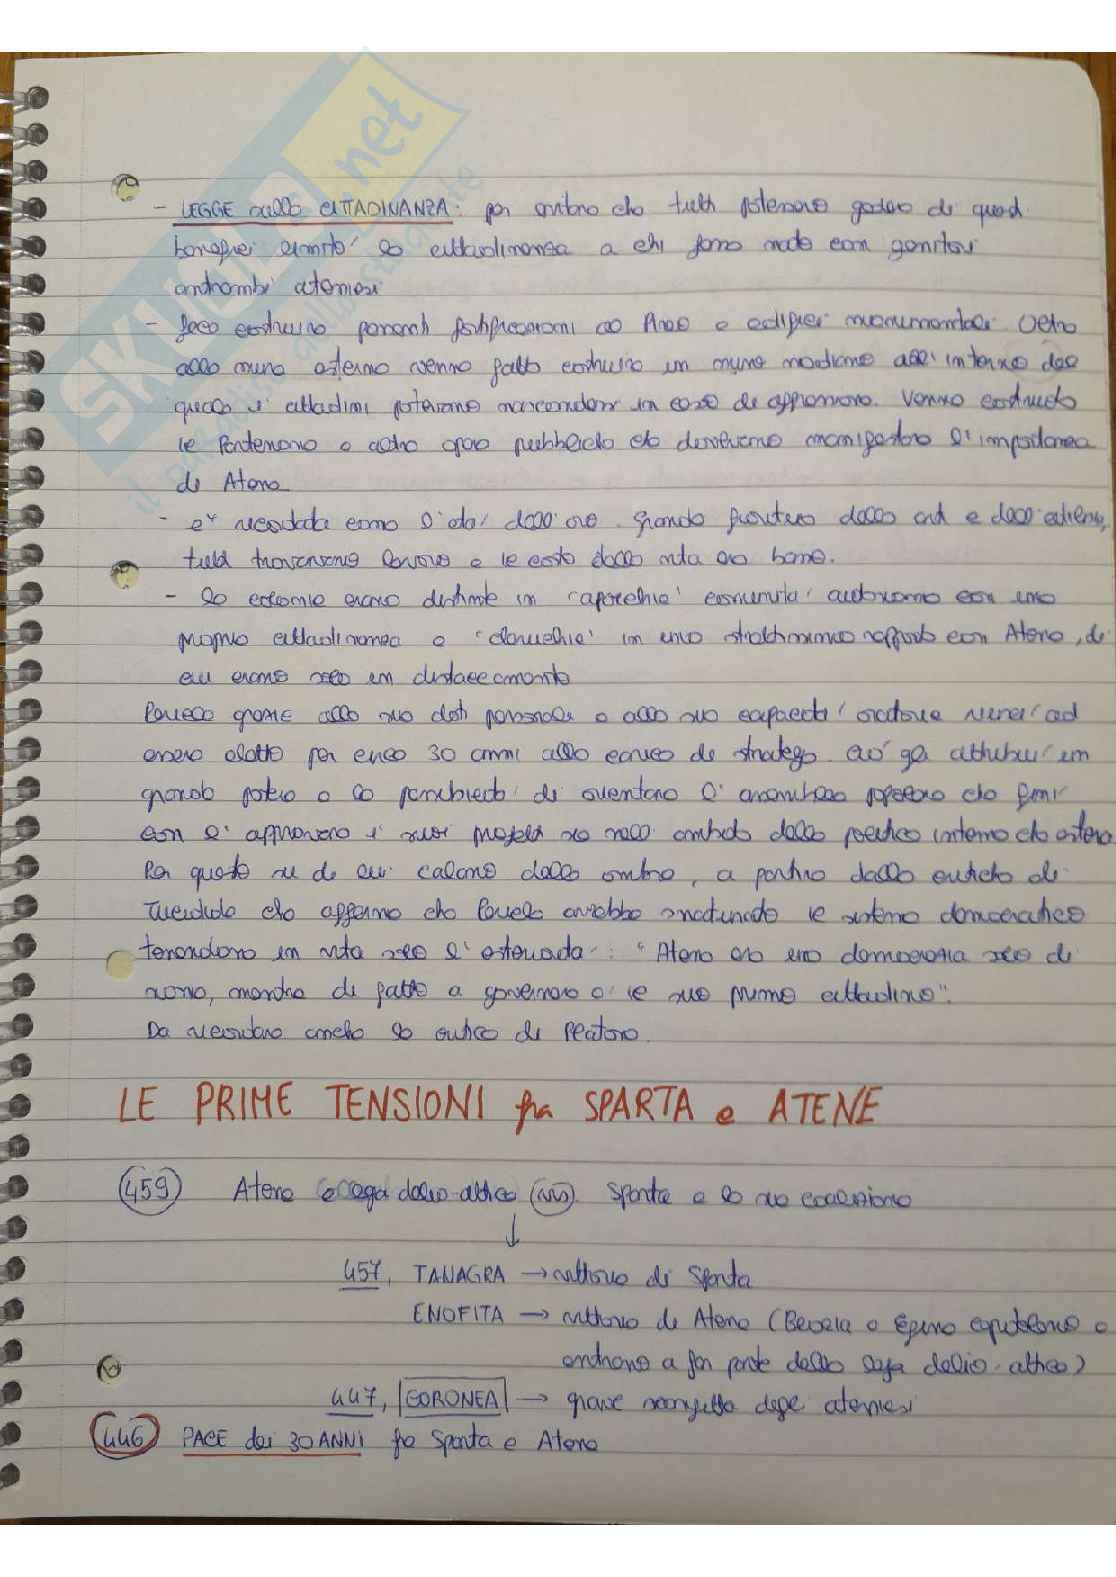 - LEGGE sulla CITTADINANZA: per evitare che tutti potessero godere di questi
benefici limitò la cittadinanza a chi fosse nato con genitori
entrambi ateniesi
- fece costruire potenti fortificazioni al Pireo e edifici monumentali. Oltre
alle mura esterne venne fatto costruire un muro mediano all'interno del
quale i cittadini potevano nascondersi in caso di aggressione. Venne costruito
il Partenone e altre opere pubbliche che dovevano manifestare l'importanza
di Atene
- e' ricordata come l'eta' dell'oro. grande fioritura delle arti e della cultura,
tutti trovavano lavoro e il costo della vita era basso.
- le colonie erano distinte in 'apoichie' comunita' autonome con una
propria cittadinanza e 'cleruchie' in uno strettissimo rapporto con Atene, di
cui erano solo un distaccamento
Pericle grazie alle sue doti personali e alle sue capacita' oratorie riusci' ad
essere eletto per circa 30 anni alla carica di stratego. Cio' gli attribui' un
grande potere e la possibilita' di orientare l'assemblea popolare che fini'
con l'approvare i suoi progetti sia nell'ambito della politica interna che estera
Per questo su di lui calano delle ombre, a partire dalla critica di
Tucidide che afferma che Pericle avrebbe snaturato il sistema democratico
tenendone in vita solo l'esteriorita': "Atene era una democrazia solo di
nome, mentre di fatto a governare e' il suo primo cittadino".
Da ricordare anche la critica di Platone.
LE PRIME TENSIONI fra SPARTA e ATENE
459 Atene e lega delio-attica vs Sparta e la sua coalizione
↓
457, TANAGRA → vittoria di Sparta
ENOFITA → vittoria di Atene (Beozia e Egina capitolano e
entrano a far parte della lega delio-attica)
447, CORONEA → grave sconfitta degli ateniesi
446 PACE dei 30 ANNI fra Sparta e Atene
SKUOLA.net